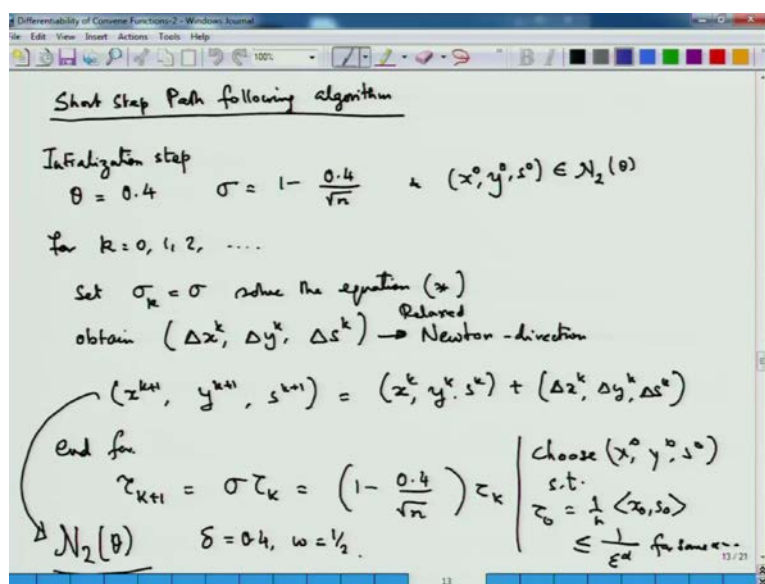 Differentiability of Convene Functions-2 - Windows Journal
File Edit View Insert Actions Tools Help
100%
B I
Short Step Path following algorithm
Initialization step
θ = 0.4 σ = 1 - 0.4/√n & (x⁰, y⁰, s⁰) ∈ N₂(θ)
for k = 0, 1, 2, ....
Set σₖ = σ solve the equation (*)
obtain (Δxᵏ, Δyᵏ, Δsᵏ) → Relaxed Newton-direction
(xᵏ⁺¹, yᵏ⁺¹, sᵏ⁺¹) = (xᵏ, yᵏ, sᵏ) + (Δxᵏ, Δyᵏ, Δsᵏ)
end for
τₖ₊₁ = στₖ = (1 - 0.4/√n) τₖ
N₂(θ) δ = 0.4, ω = 1/2.
choose (x⁰, y⁰, s⁰)
s.t.
τ₀ = 1/n <x₀, s₀>
≤ 1/εᵅ for some
13/21
13